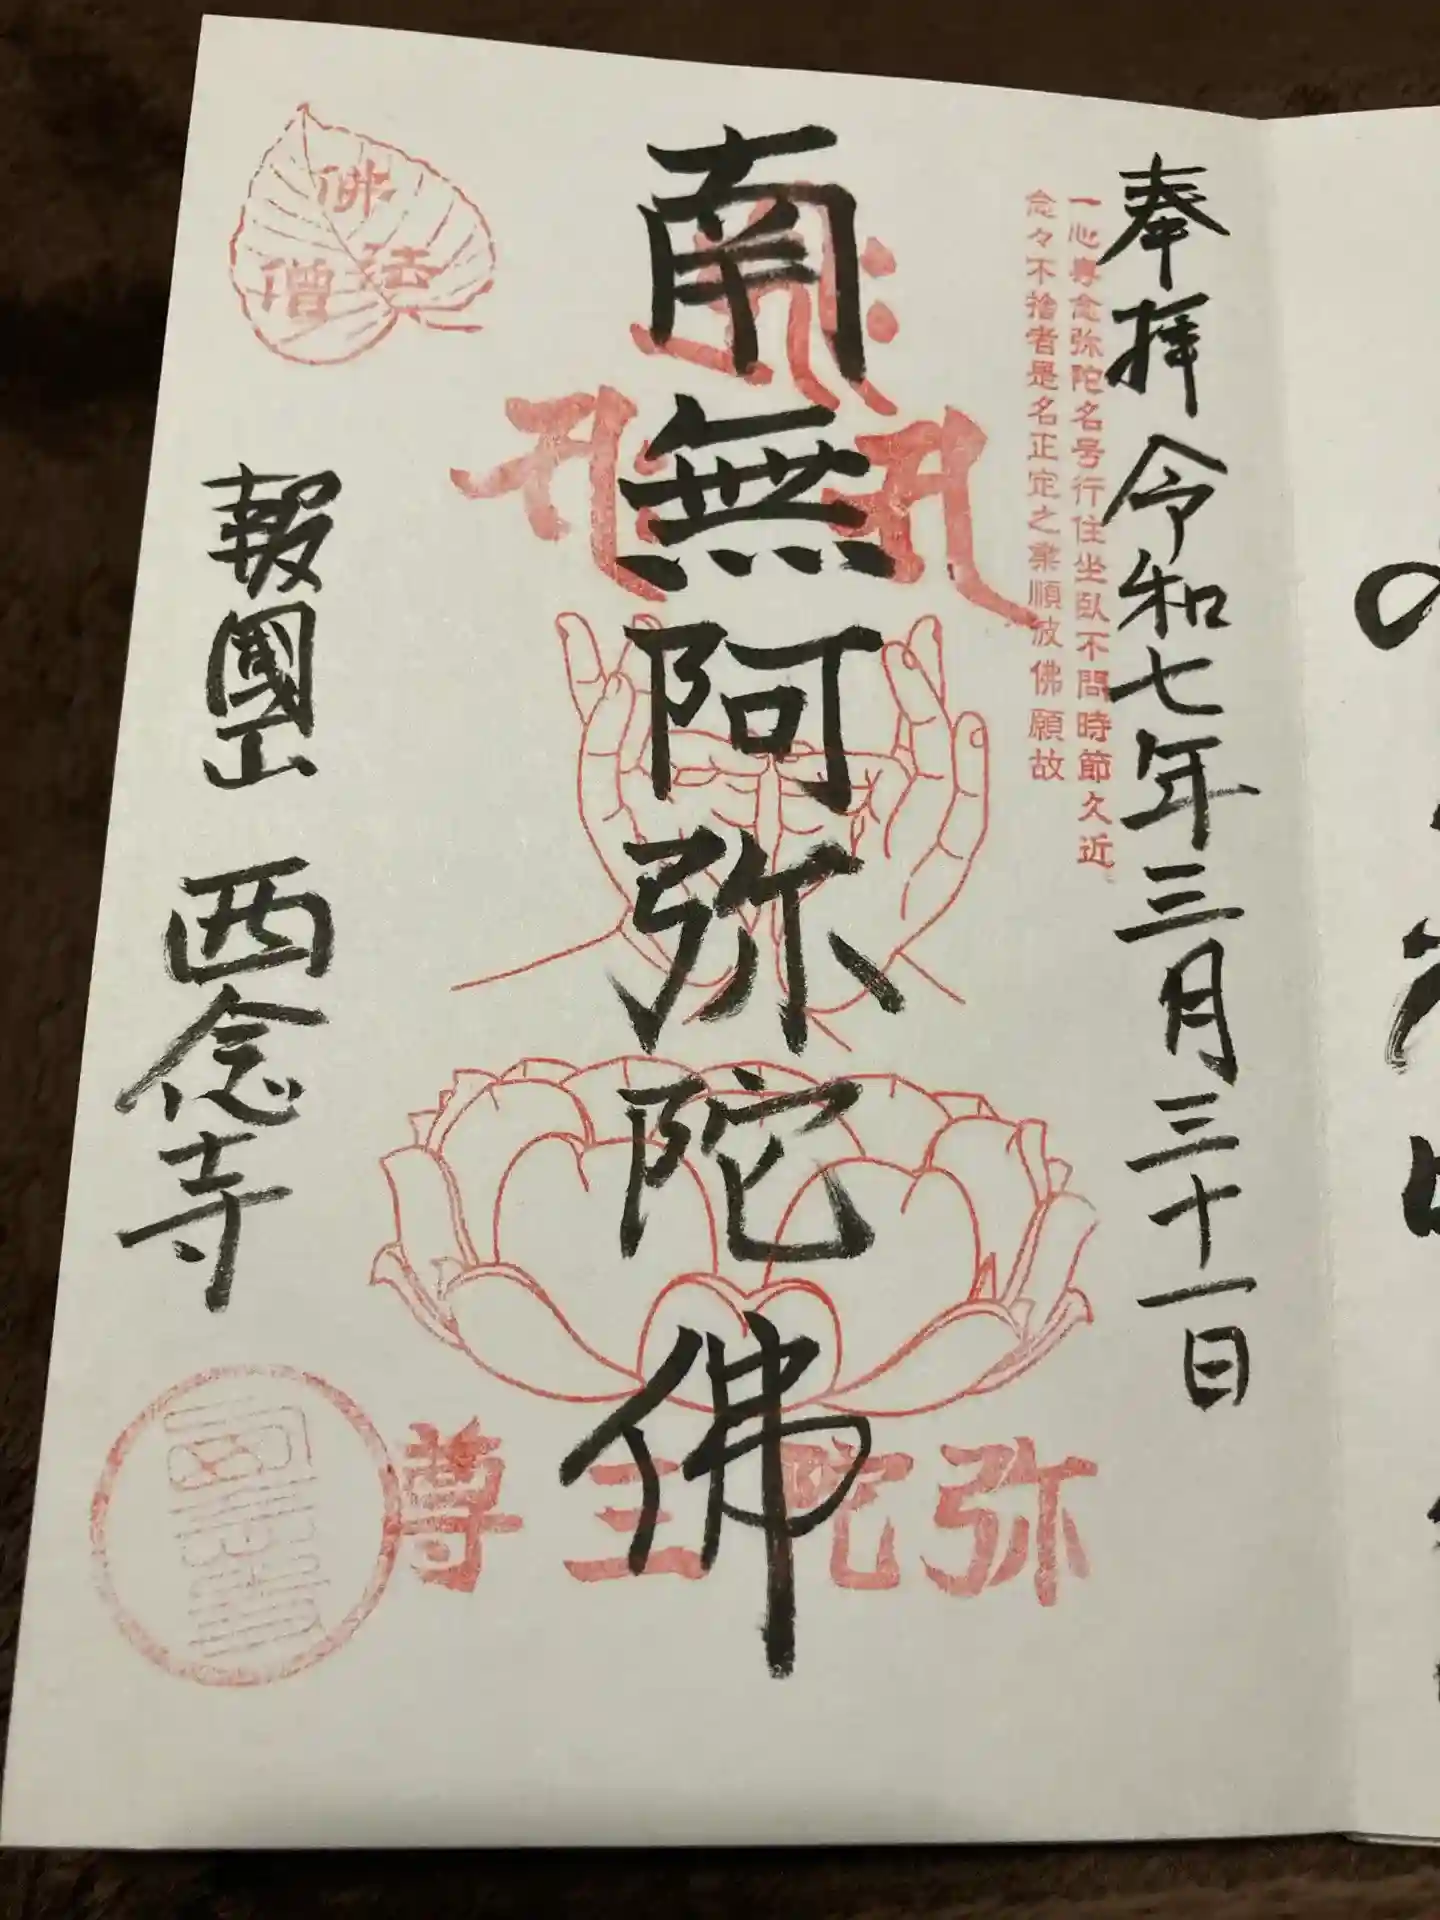 奉拝 令和七年三月三十一日
一心専念弥陀名号行住坐臥不問時節久近
念々不捨者是名正定之業順彼佛願故
南無阿弥陀佛
弥陀三尊
佛
法
僧
報國山 西念寺